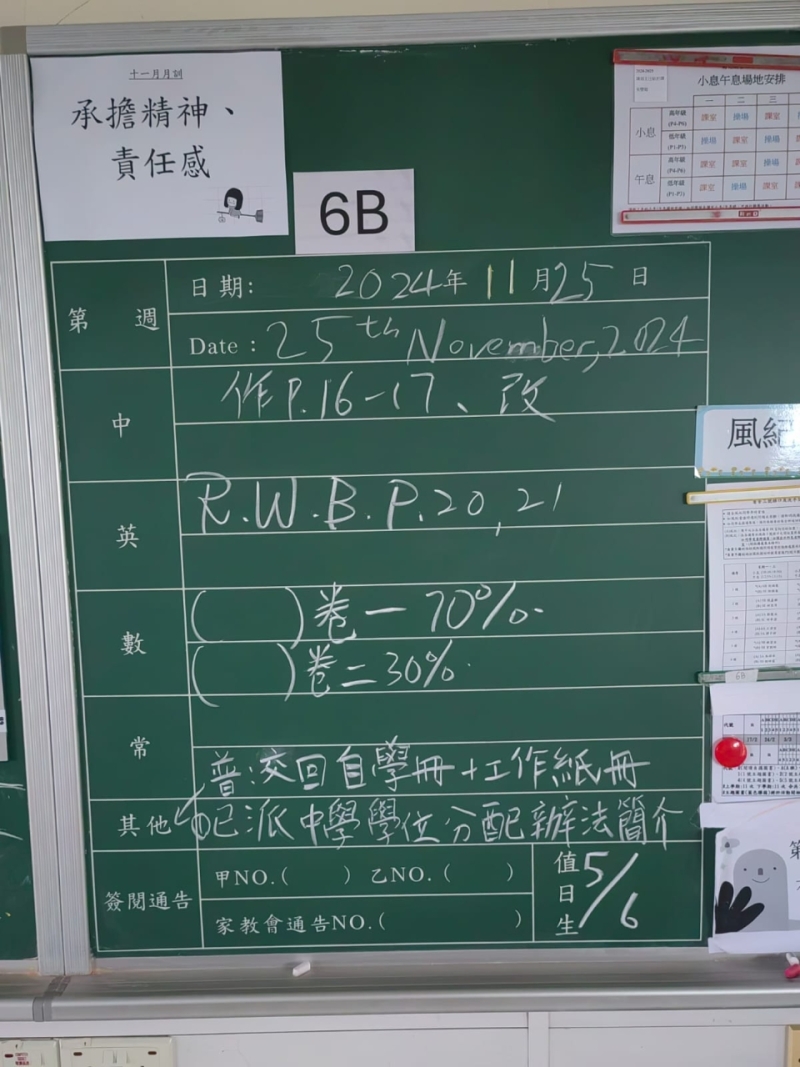 十一月月訓
承擔精神、
責任感
6B
小息午息場地安排
一 二 三
小息
高年級 (P4-P6) 課室 操場 課室
低年級 (P1-P3) 操場 課室 操場
午息
高年級 (P4-P6) 課室 課室 操場
低年級 (P1-P3) 課室 操場 課室
第 週
日期: 2024年 11月25日
Date : 25th November, 2024
中
作P.16-17、改
英
R.W.B.P.20,21
數
( )卷一70%.
( )卷二30%.
常
普:交回自學冊+工作紙冊
其他
①已派中學學位分配辦法簡介
簽閱通告
甲NO.( ) 乙NO.( )
家教會通告NO.( )
值日生 5/6
風紀
6B
第